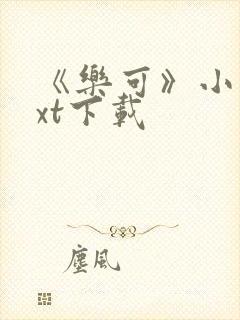 《樂可》小
xt下載
塵風